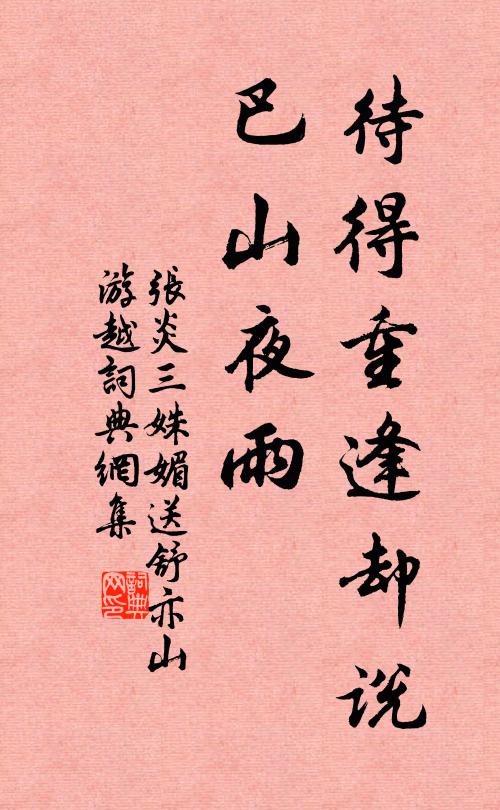 待得重逢却説
巴山夜雨
張炎三姝媚送舒亦山
游越詞典網集
詞典网印